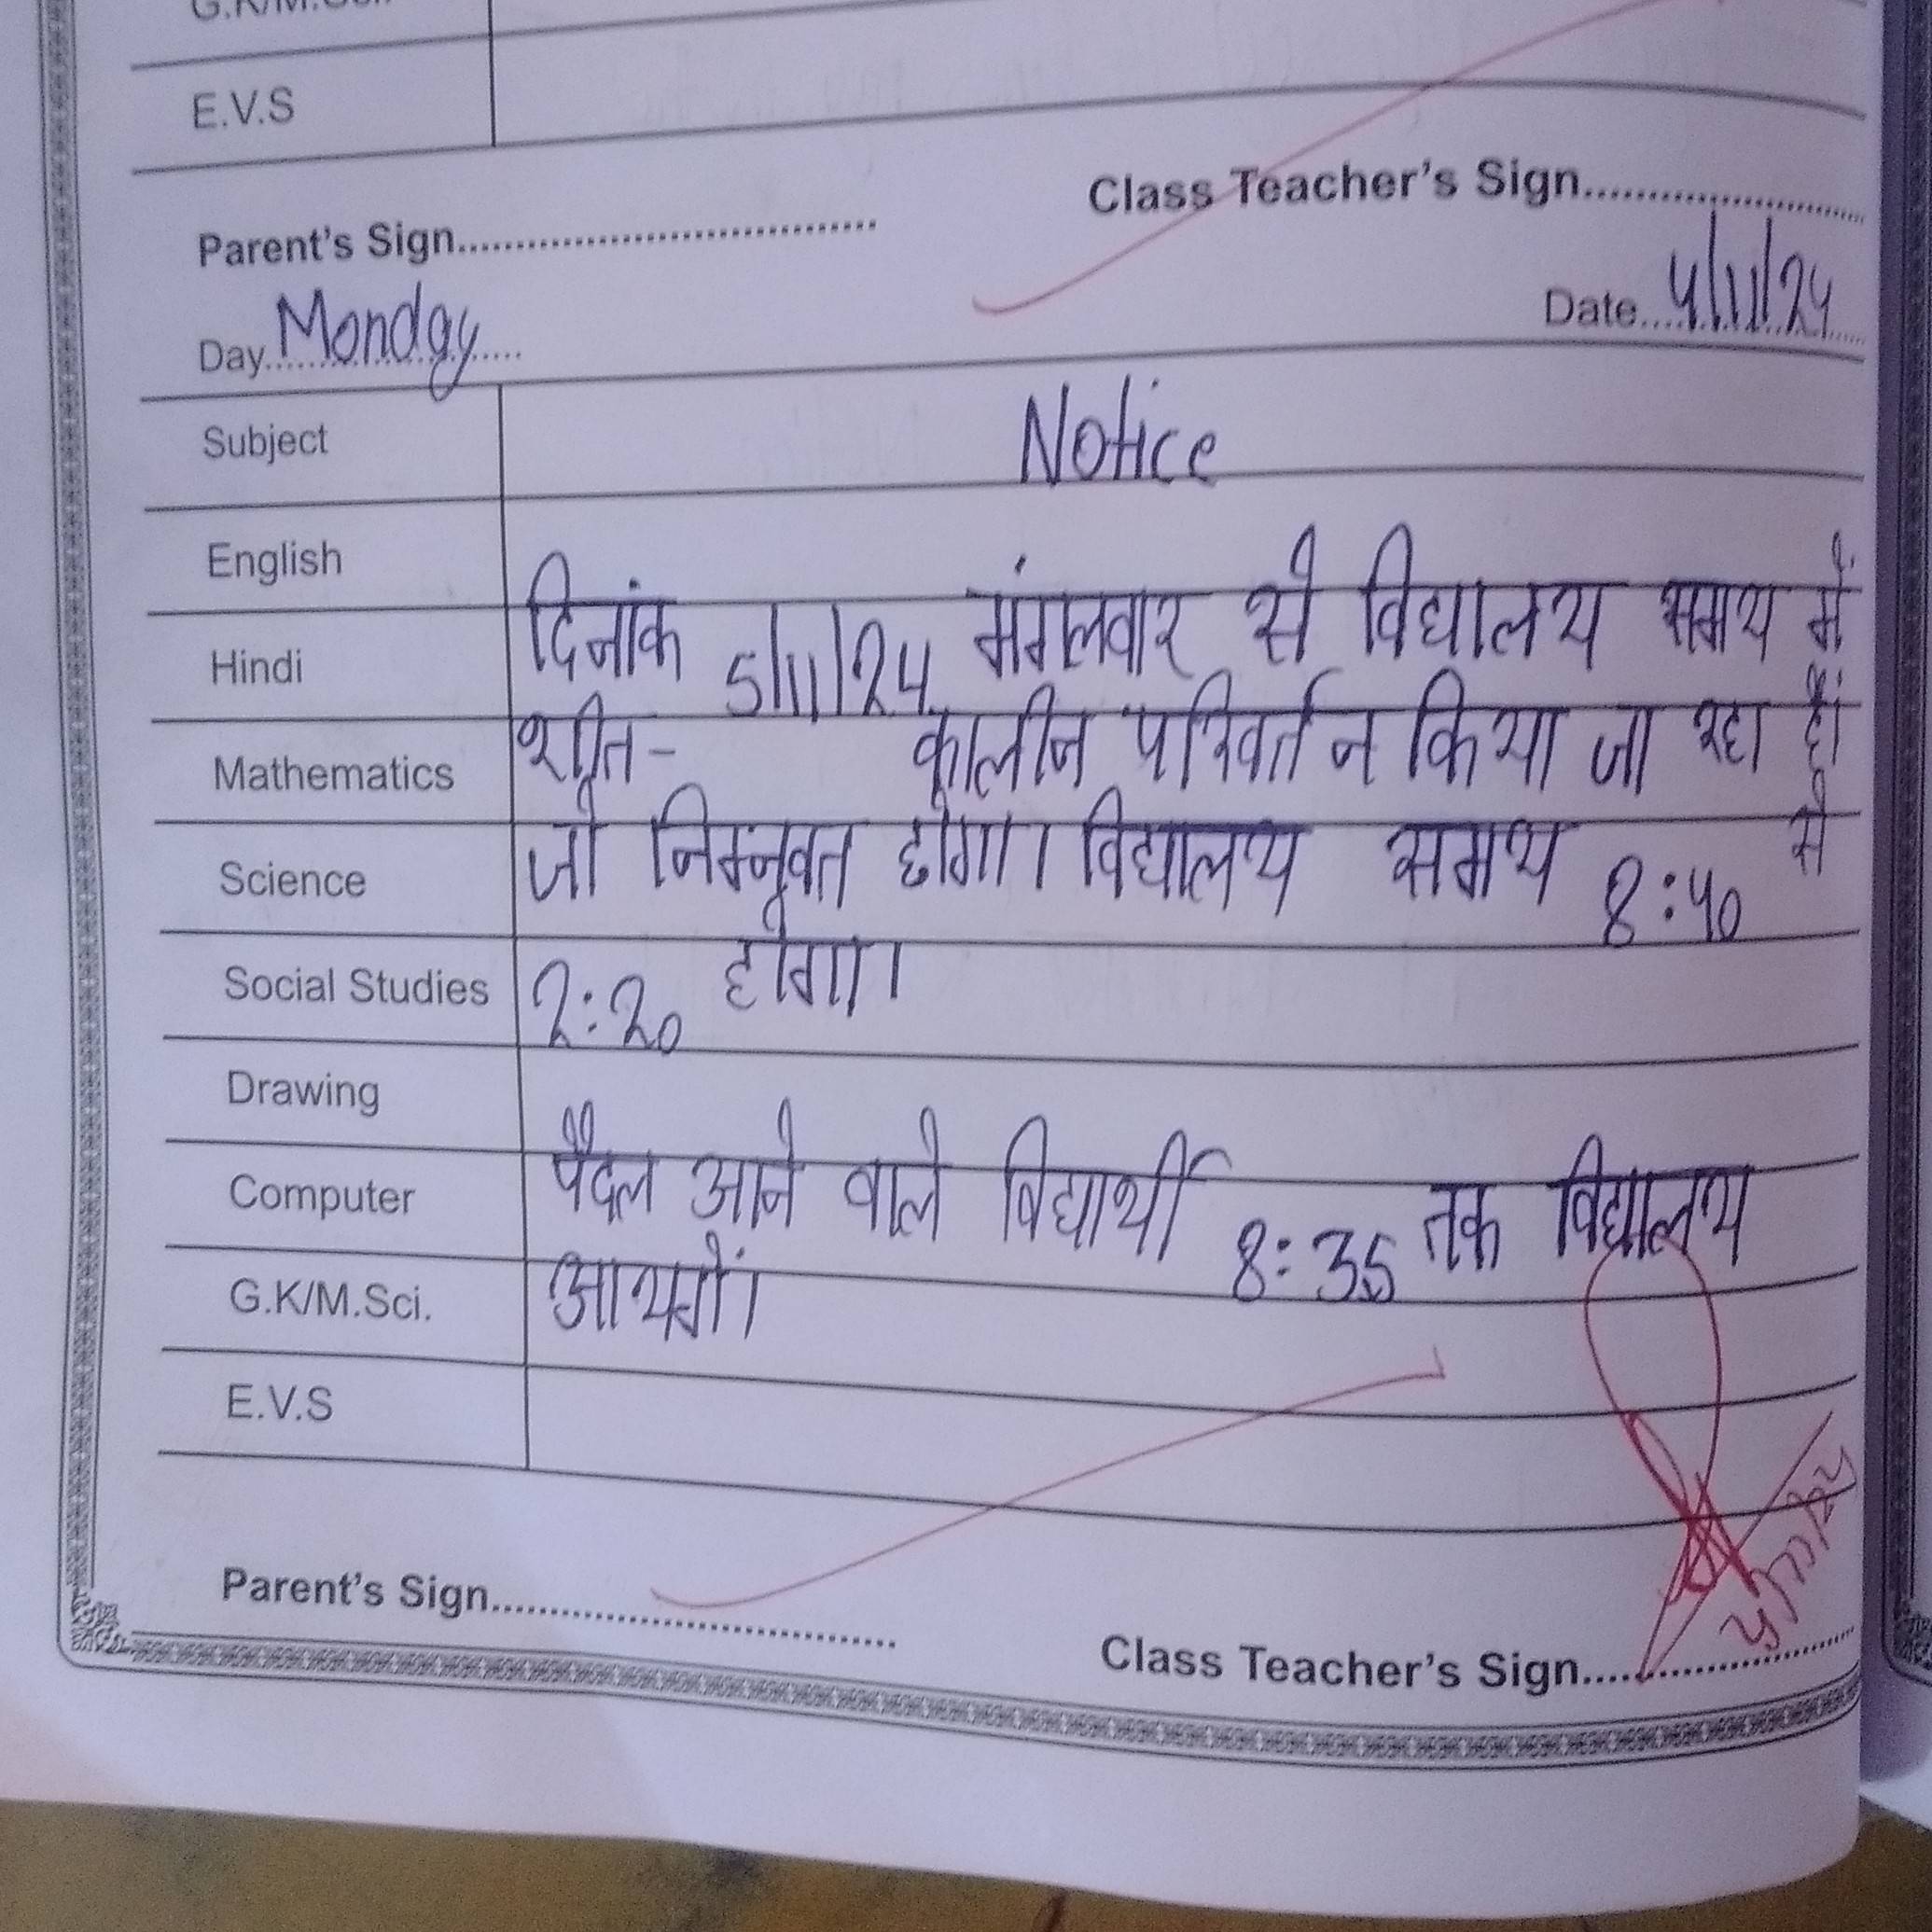 E.V.S
Parent's Sign.................................... Class Teacher's Sign........................
Day Monday Date 4/11/24
Subject Notice
English
दिनांक 5/11/24 मंगलवार से विद्यालय समय में
Hindi
शीत- कालीन परिवर्तन किया जा रहा हैं
Mathematics
जो निम्नवत होगा। विद्यालय समय 8:40 से
Science
Social Studies 2:20 होगा।
Drawing
Computer पैदल आने वाले विद्यार्थी 8:35 तक विद्यालय
G.K/M.Sci. आयगें।
E.V.S
Parent's Sign.................................... Class Teacher's Sign........................